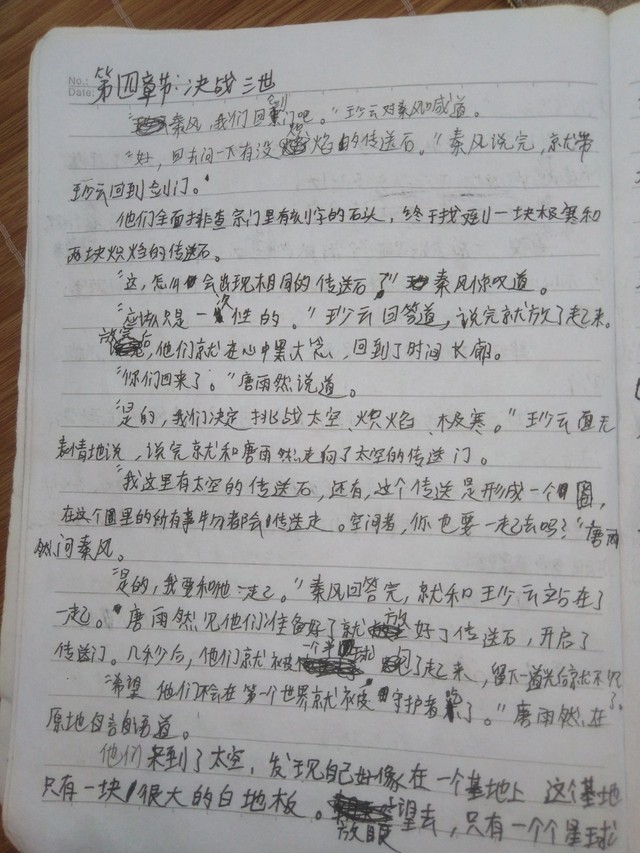 No.:
Date:
第四章节:决战三世
“秦风,我们回剑门吧。”玅云对秦风喊道。
“好,回去问一下有没炽焰的传送石。”秦风说完,就带
玅云回到剑门。
他们全面排查宗门里有刻字的石头,终于找到一块极寒和
两块炽焰的传送石。
“这,怎么会出现相同的传送石了”秦风惊叹道。
“应该只是一次性的。”玅云回答道,说完就放了起来。
放完后,他们就在心中默念,回到了时间长廊。
“你们回来了。”唐雨然说道。
“是的,我们决定挑战太空、炽焰、极寒。”玅云面无
表情地说,说完就和唐雨然走向了太空的传送门。
“我这里有太空的传送石,还有,这个传送是形成一个圈,
在这个圈里的所有事物都会传送走。空间者,你也要一起去吗?”唐雨
然问秦风。
“是的,我要和他一起。”秦风回答完,就和玅云站在了
一起。唐雨然见他们准备好了就放好了传送石,开启了
传送门。几秒后,他们就被一个半圆球包了起来,留下一道光后就不见了。
“希望他们不会在第一个世界就被守护者杀了。”唐雨然在
原地自言自语道。
他们来到了太空,发现自己好像在一个基地上 这个基地
只有一块很大的白地板。放眼望去,只有一个个星球